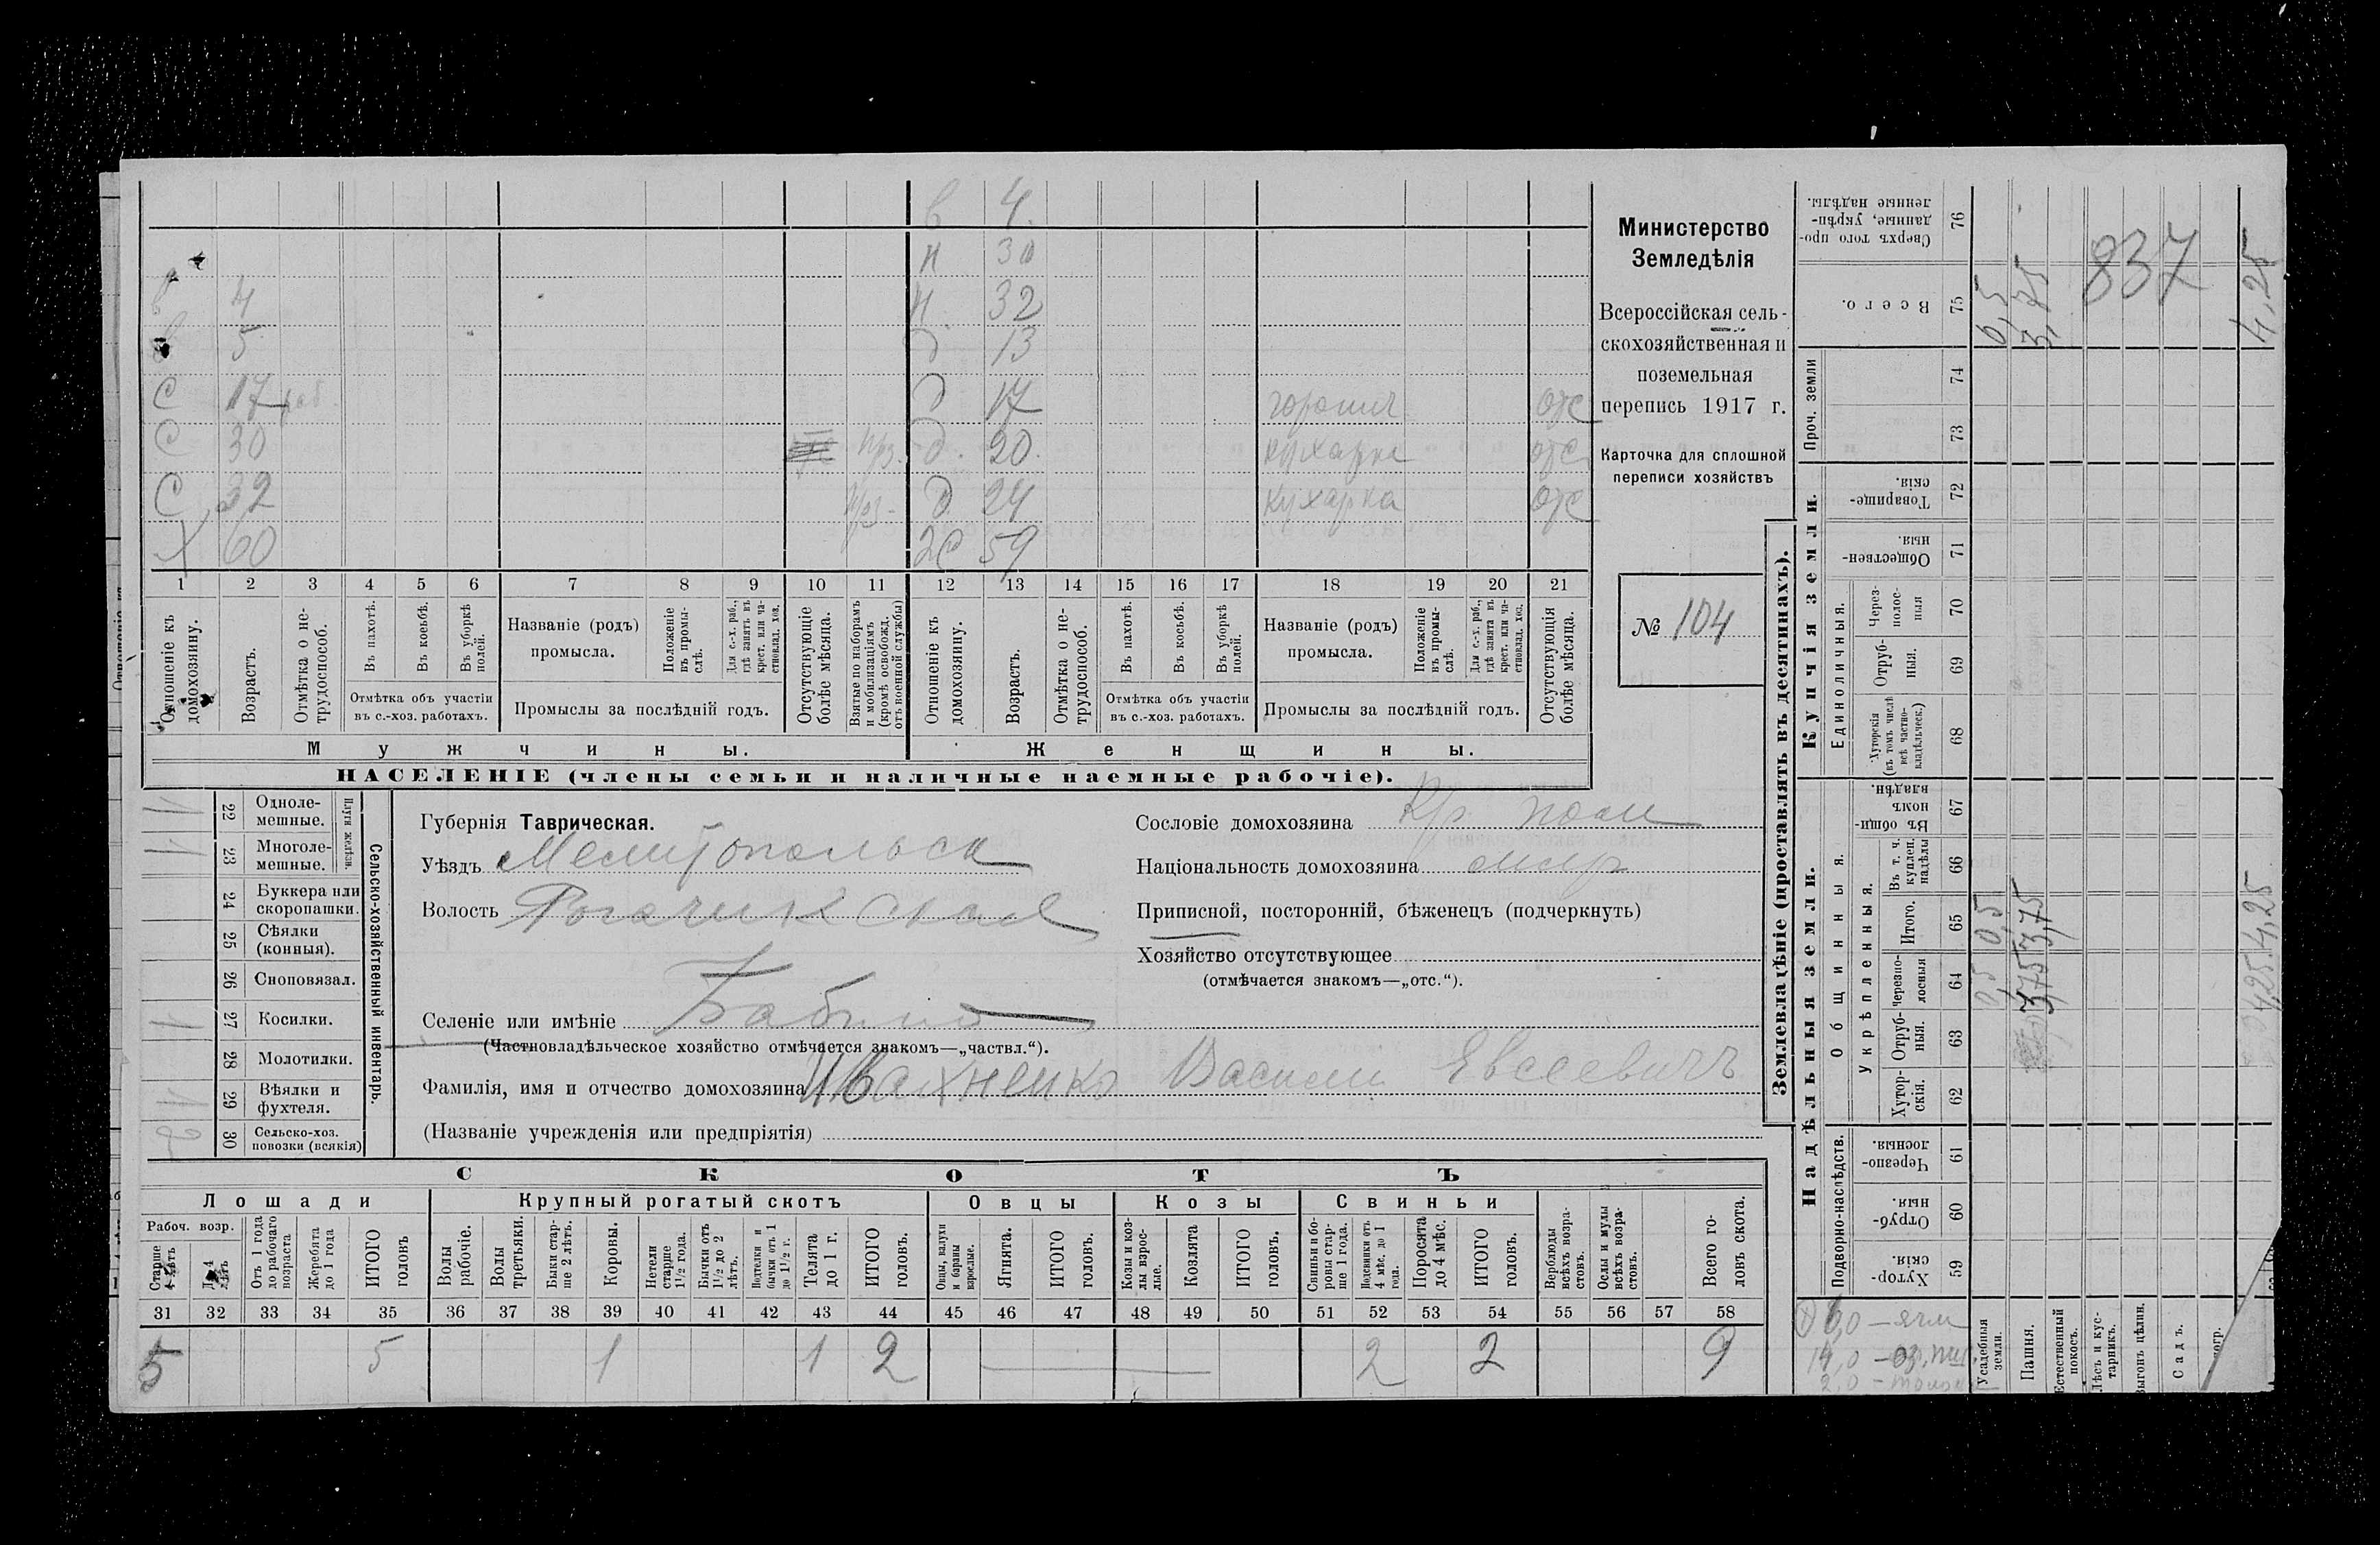 в 4.
н 30
в 4 н 32
в 5 д 13
С 17 раб. д 17 горнич. отс
С 30 прз. д. 20. кухарка отс
С 32 прз. д 24 кухарка отс
Х 60 ЖС 59
1 2 3 4 5 6 7 8 9 10 11 12 13 14 15 16 17 18 19 20 21
Отношеніе къ домохозяину.
Возрастъ.
Отмѣтка о нетрудоспособ.
Въ пахотѣ.
Въ косьбѣ.
Въ уборкѣ полей.
Отмѣтка объ участіи
въ с.-хоз. работахъ.
Названіе (родъ)
промысла.
Положеніе въ промыслѣ.
Для с.-х. раб., гдѣ занятъ въ крест. или частновлад. хоз.
Промыслы за послѣдній годъ.
Отсутствующіе болѣе мѣсяца.
Взятые по наборамъ и мобилизаціямъ (кромѣ освобожд. отъ военной службы)
Отношеніе къ домохозяину.
Возрастъ.
Отмѣтка о нетрудоспособ.
Въ пахотѣ.
Въ косьбѣ.
Въ уборкѣ полей.
Отмѣтка объ участіи
въ с.-хоз. работахъ.
Названіе (родъ)
промысла.
Положеніе въ промыслѣ.
Для с.-х. раб., гдѣ занята въ крест. или частновлад. хоз.
Промыслы за послѣдній годъ.
Отсутствующія болѣе мѣсяца.
Мужчины. Женщины.
НАСЕЛЕНІЕ (члены семьи и наличные наемные рабочіе).
Министерство
Земледѣлія
Всероссійская сель-
скохозяйственная и
поземельная
перепись 1917 г.
Карточка для сплошной
переписи хозяйствъ
№ 104
Сельско-хозяйственный инвентарь.
Плуги желѣзн.
22 Одноле-
мешные.
23 Многоле-
мешные.
24 Буккера или
скоропашки.
25 Сѣялки
(конныя).
26 Сноповязал.
27 Косилки.
28 Молотилки.
29 Вѣялки и
фухтеля.
30 Сельско-хоз.
повозки (всякія)
Губернія Таврическая.
Уѣздъ Мелитопольск
Волость Рогачикская
Селеніе или имѣніе Бабино
(Частновладѣльческое хозяйство отмѣчается знакомъ—„частвл.“).
Фамилія, имя и отчество домохозяина Ивахненко Василий Евсеевичъ
(Названіе учрежденія или предпріятія)
Сословіе домохозяина Кр.
Національность домохозяина млр
Приписной, посторонній, бѣженецъ (подчеркнуть)
Хозяйство отсутствующее
(отмѣчается знакомъ—„отс.“).
СКОТЪ
Лошади Крупный рогатый скотъ Овцы Козы Свиньи
Рабоч. возр.
Старше 4 лѣтъ
До 4 лѣтъ
Отъ 1 года до рабочаго возраста
Жеребята до 1 года
ИТОГО головъ
Волы рабочіе.
Волы третьяки.
Быки старше 2 лѣтъ.
Коровы.
Нетели старше 1½ года.
Бычки отъ 1½ до 2 лѣтъ.
Подтелки и бычки отъ 1 до 1½ г.
Телята до 1 г.
ИТОГО головъ.
Овцы, валухи и бараны взрослые.
Ягнята.
ИТОГО головъ.
Козы и козлы взрослые.
Козлята
ИТОГО головъ.
Свиньи и боровы старше 1 года.
Подсвинки отъ 4 мѣс. до 1 года.
Поросята до 4 мѣс.
ИТОГО головъ.
Верблюды всѣхъ возрастовъ.
Ослы и мулы всѣхъ возрастовъ.
Всего головъ скота.
31 32 33 34 35 36 37 38 39 40 41 42 43 44 45 46 47 48 49 50 51 52 53 54 55 56 57 58
5 5 1 1 2 2 2 9
Землевладѣніе (проставлять въ десятинахъ).
Купчія земли.
Надѣльныя земли.
Проч. земли
Единоличныя.
Общинныя.
Укрѣпленныя.
Подворно-наслѣдств.
Сверхъ того проданные, укрѣпленные надѣлы. 76
Всего. 75
74
73
Товарищескія. 72
Общественныя. 71
Черезполосныя 70
Отрубныя. 69
Хуторскія (въ томъ числѣ всѣ частновладѣльческ.) 68
Въ общиномъ владѣн. 67
Въ т. ч. куплен. надѣлы 66
Итого. 65
Черезполосныя 64
Отрубныя. 63
Хуторскія. 62
Черезполосныя. 61
Отрубныя. 60
Хуторскія. 59
Усадебныя земли.
Пашня.
Естественный покосъ.
Лѣсъ и кустарникъ.
Выгонъ цѣлин.
Садъ.
0,5
3,75
837
4,25
0,5 0,5
3,75 3,75
4,25 4,25
— ячм
— оз. пш.
2,0 — толока